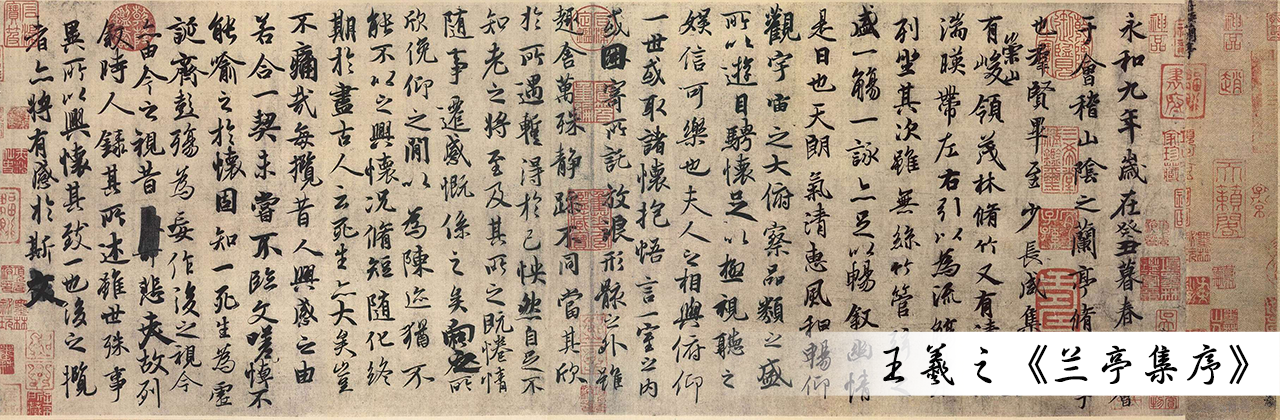 永和九年歲在癸丑暮春
于會稽山陰之蘭亭脩
也羣賢畢至少長咸集
有崇山峻領茂林脩竹又有
湍暎帶左右引以為流
列坐其次雖無絲竹管
盛一觴一詠亦足以暢叙幽情
是日也天朗氣清惠風和暢仰
觀宇宙之大俯察品類之盛
所以遊目騁懷足以極視聽之
娛信可樂也夫人之相與俯仰
一世或取諸懷抱悟言一室之內
或因寄所託放浪形骸之外雖
趣舍萬殊靜躁不同當其欣
於所遇暫得於己怏然自足不
知老之將至及其所之既惓情
隨事遷感慨係之矣向之所
欣俛仰之間以為陳迹猶不
能不以之興懷況脩短隨化終
期於盡古人云死生亦大矣豈
不痛哉每攬昔人興感之由
若合一契未嘗不臨文嗟悼不
能喻之於懷固知一死生為虛
誕齊彭殤為妄作後之視今
亦由今之視昔悲夫故列
叙時人錄其所述雖世殊事
異所以興懷其致一也後之攬
者亦將有感於斯文
王羲之《兰亭集序》